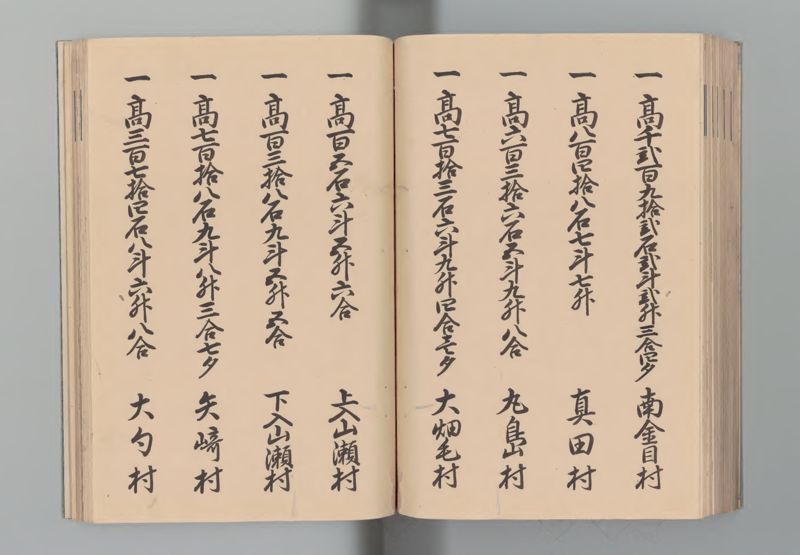 一 髙千弐百九拾弐石弐斗弐升三合四夕 南金目村
一 髙八百四拾八石七斗七升 真田村
一 髙六百三拾六石五斗九升八合 丸島村
一 髙七百拾三石六斗九升四合壱夕 大畑毛村
一 髙百五石六斗五升六合 上入山瀬村
一 髙百三拾八石九斗五升五合 下入山瀬村
一 髙七百拾八石九斗八升三合七夕 矢﨑村
一 髙三百七拾四石八斗六升八合 大勺村